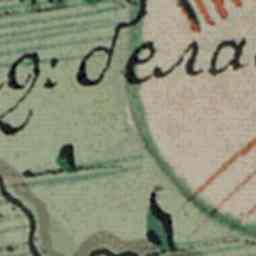 д: бела